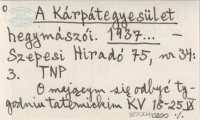 A Kárpátegyesület
hegymászói. 1937... —
Szepesi Hiradó 75, nr 34:
3. TNP
O mającym się odbyć ty-
godniu taternickim KV 18-25 IX